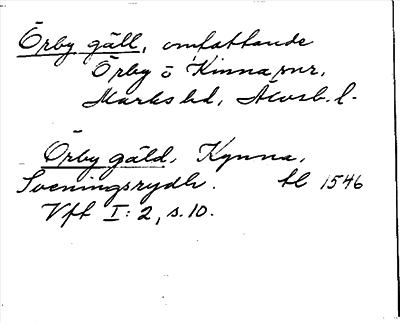 Örby gäll, omfattande
Örby o Kinna snr,
Marks hd, Älvsb. l.
Örby gäld, Kynna,
Sveningsrydh. tl 1546
Vft I: 2, s. 10.